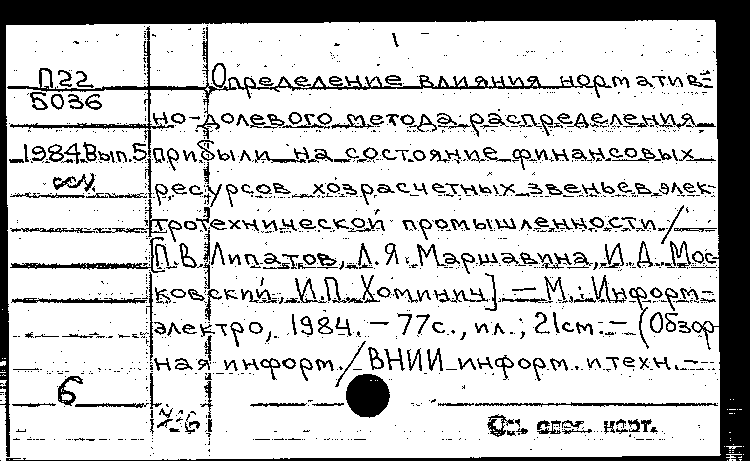 П22
5036
1984 Вып.5
Определение влияния норматив-
но-долевого метода распределения
прибыли на состояние финансовых
ресурсов хозрасчетных звеньев элек-
тротехнической промышленности /
[П.В. Липатов, Л.Я. Маршавина, И.Д. Мос-
ковский, И.П. Хоминич] — М.: Информ-
электро, 1984. — 77с., ил.; 21см. — (Обзор-
ная информ. / ВНИИ информ. и техн. —
6
См. след. карт.